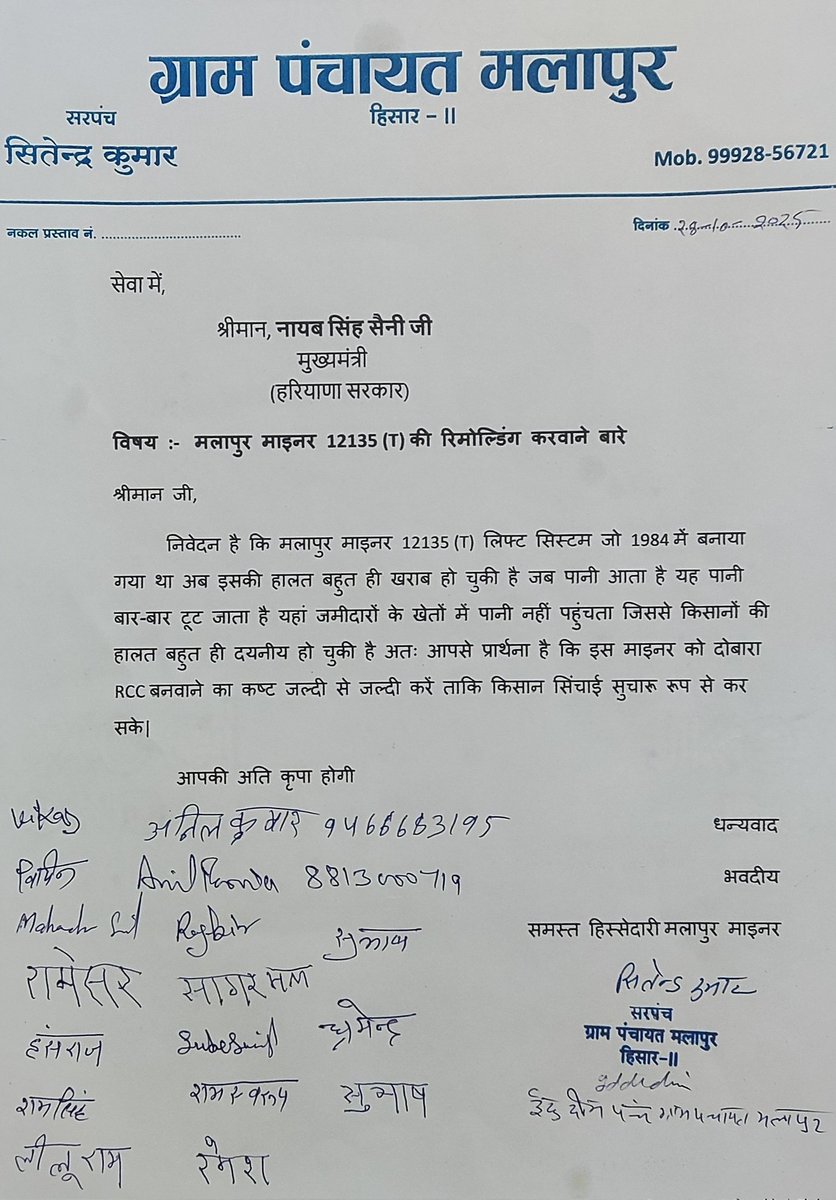 ग्राम पंचायत मलापुर
हिसार – II
सरपंच
सितेन्द्र कुमार
Mob. 99928-56721
नकल प्रस्ताव नं. ....................................
दिनांक 28-10-2025
सेवा में,
श्रीमान, नायब सिंह सैनी जी
मुख्यमंत्री
(हरियाणा सरकार)
विषय :- मलापुर माइनर 12135 (T) की रिमोल्डिंग करवाने बारे
श्रीमान जी,
निवेदन है कि मलापुर माइनर 12135 (T) लिफ्ट सिस्टम जो 1984 में बनाया
गया था अब इसकी हालत बहुत ही खराब हो चुकी है जब पानी आता है यह पानी
बार-बार टूट जाता है यहां जमीदारों के खेतों में पानी नहीं पहुंचता जिससे किसानों की
हालत बहुत ही दयनीय हो चुकी है अतः आपसे प्रार्थना है कि इस माइनर को दोबारा
RCC बनवाने का कष्ट जल्दी से जल्दी करें ताकि किसान सिंचाई सुचारू रूप से कर
सके|
आपकी अति कृपा होगी
अनिल कुमार 9466663195
धन्यवाद
8813000719
भवदीय
समस्त हिस्सेदारी मलापुर माइनर
Rajbir सुभाष
रामेसर सागरमल
सितेन्द्र कुमार
सरपंच
ग्राम पंचायत मलापुर
हिसार-II
हंसराज
रामसिंह रामस्वरूप सुभाष
पंच ग्राम पंचायत मलापुर
लीलूराम रमेश